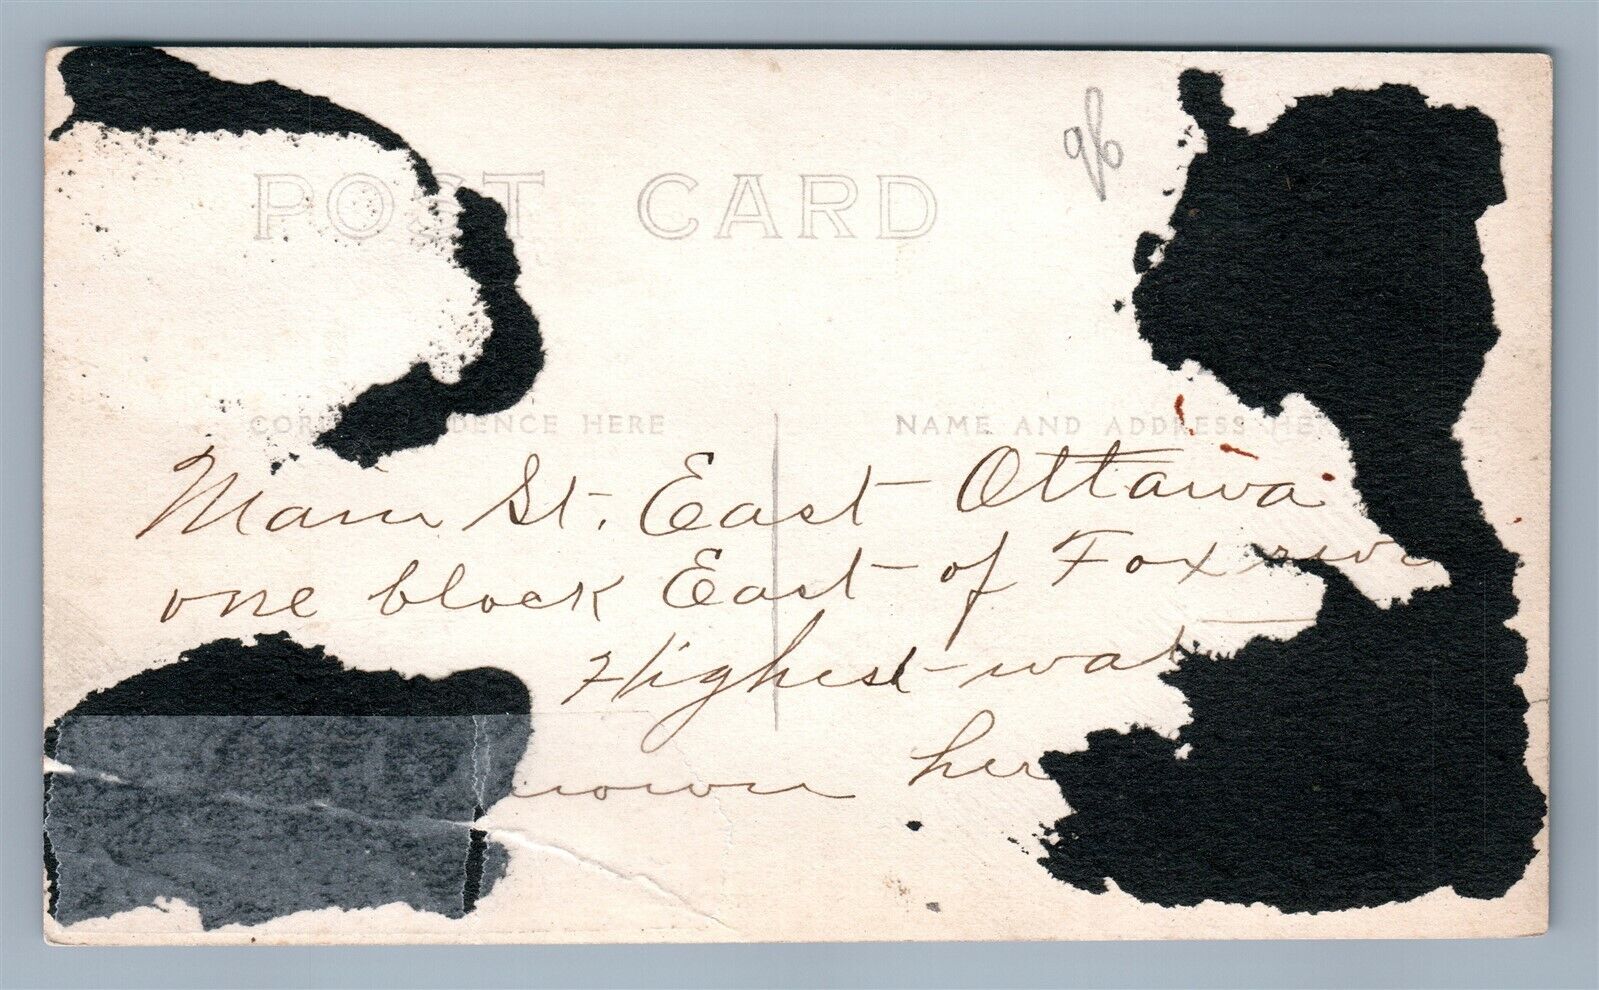 96
POST CARD
CORRESPONDENCE HERE
NAME AND ADDRESS HER
Main St. East Ottawa
one block East of Fox rive
Highest wat
nown her